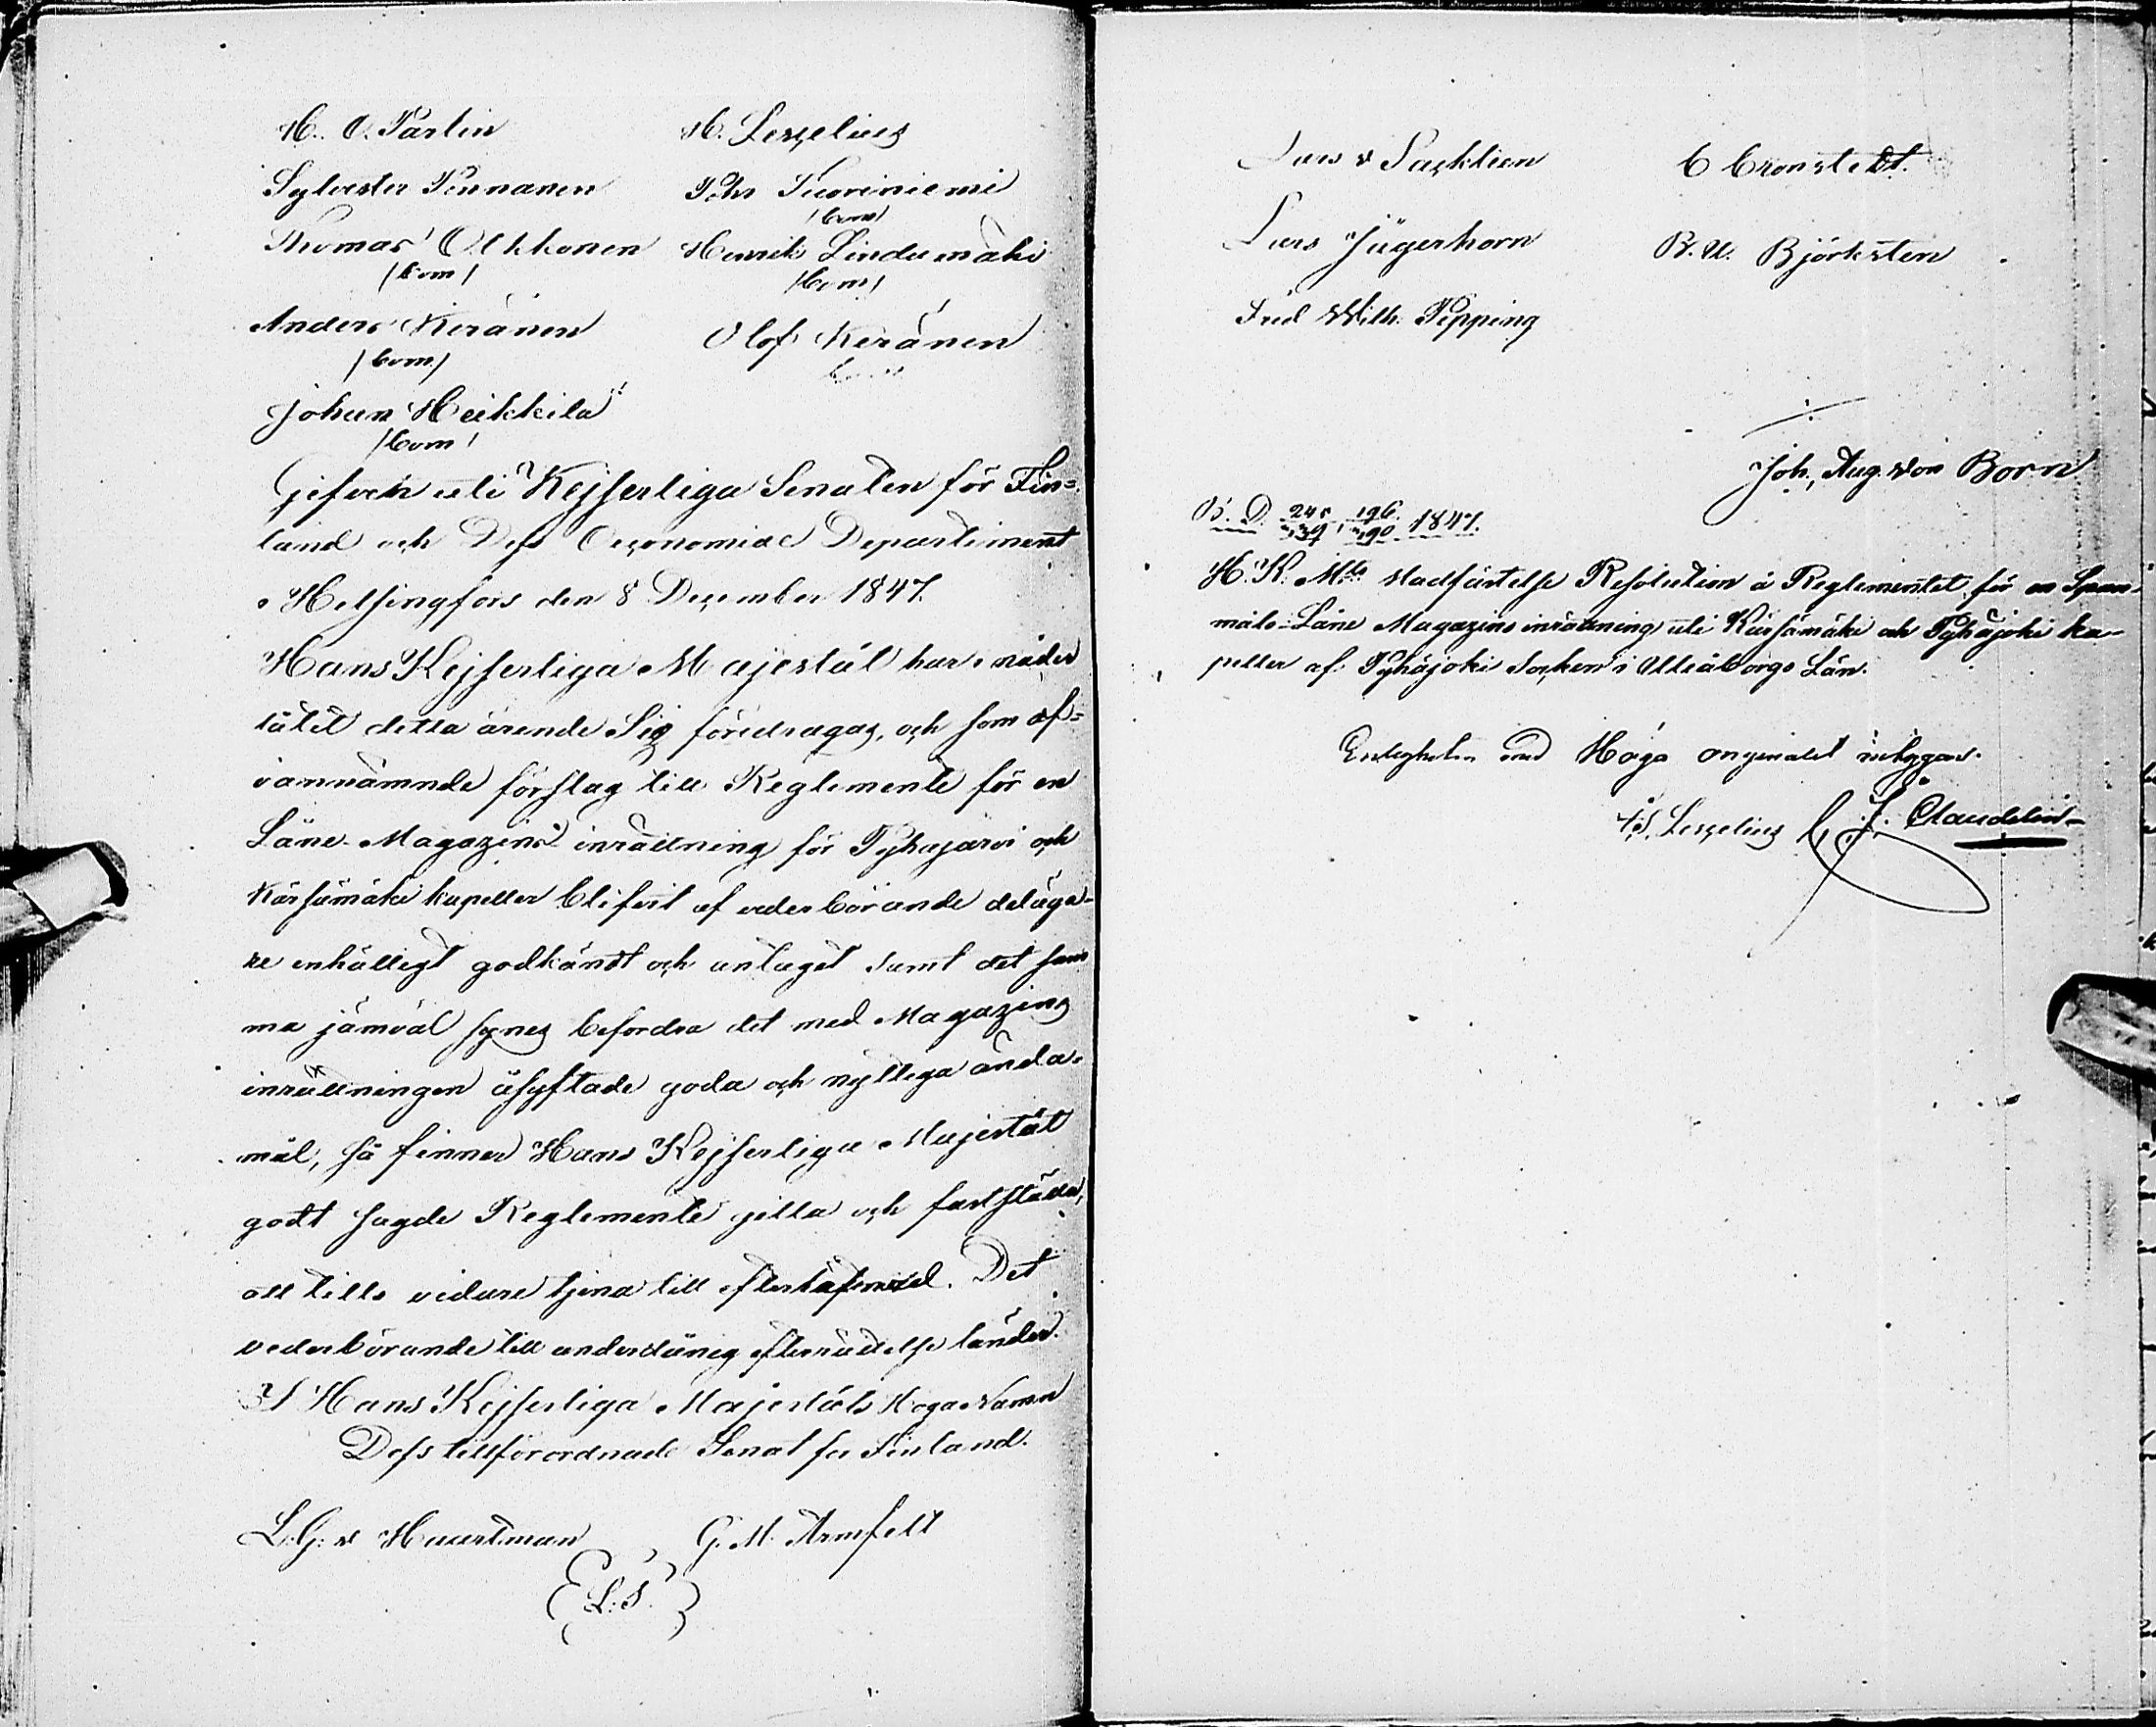 H. O. Parlin H. Lesçelius
Sylvester Pennanen Joh: Tuoriniemi
(bom)
Thomas Olkkonen Henrik Lindumäki
(bom) (bom)
Anders Keränen Olof Keränen
(bom)
Johan Heikkilä
(bom)
Gifven uti Kejserliga Senaten för Fin=
land och Dess Oeconomiae Departiment
i Helsingfors den 8 December 1847.
Hans Kejserliga Majestät har i nåder
låtit detta ärende Sig föredragas, och som of=
vannämnde förslag till Reglemente för en
Låne-Magazins inrättning för Pyhäjärvi och
Kärsämäki kapeller blifvit af vederbörande delega-
re enhälligt godkändt och antaget samt det sam
ma jämväl synes befordra det med Magazins
inrättningen åsyftade goda och nyttiga ända-
mål, så finner Hans Kejserliga Majestät
godt sagde Reglemente gilla och fastställa,
att tills vidare tjena till efterlefnad. Det
vederbörande till underdånig efterrättelse länder.
I Hans Kejserliga Majestäts Höga Namn
Dess tillförordnade Senat för Finland.
L. G. v Haartman G. M. Armfelt
(L.S.)
Lars v Sacklien C Cronstedt.
Lars Jägerhorn B. U. Björksten
Fred Wilh. Pipping
Joh. Aug. von Born
B. D. 1847.
H. K. M:ts Stadfästelse Resolution å Reglementet för en Span-
måls-Låne Magazins inrättning uti Kärsämäki och Pyhäjoki ka-
peller af Pyhäjoki Socken i Uleåborgs Län.
Enligheten med Höga originalet intygas.
Lesçelius C. J. Claudelin